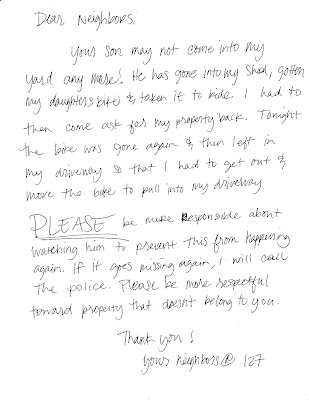 Dear Neighbors,
Your son may not come into my
yard any more! He has gone into my shed, gotten
my daughters bike & taken it to ride. I had to
then come ask for my property back. Tonight
the bike was gone again & then left in
my driveway so that I had to get out &
move the bike to pull into my driveway.
PLEASE be more Responsible about
watching him to prevent this from happening
again. If it goes missing again, I will call
the police. Please be more respectful
toward property that doesn't belong to you.
Thank you!
Your neighbors @ 127